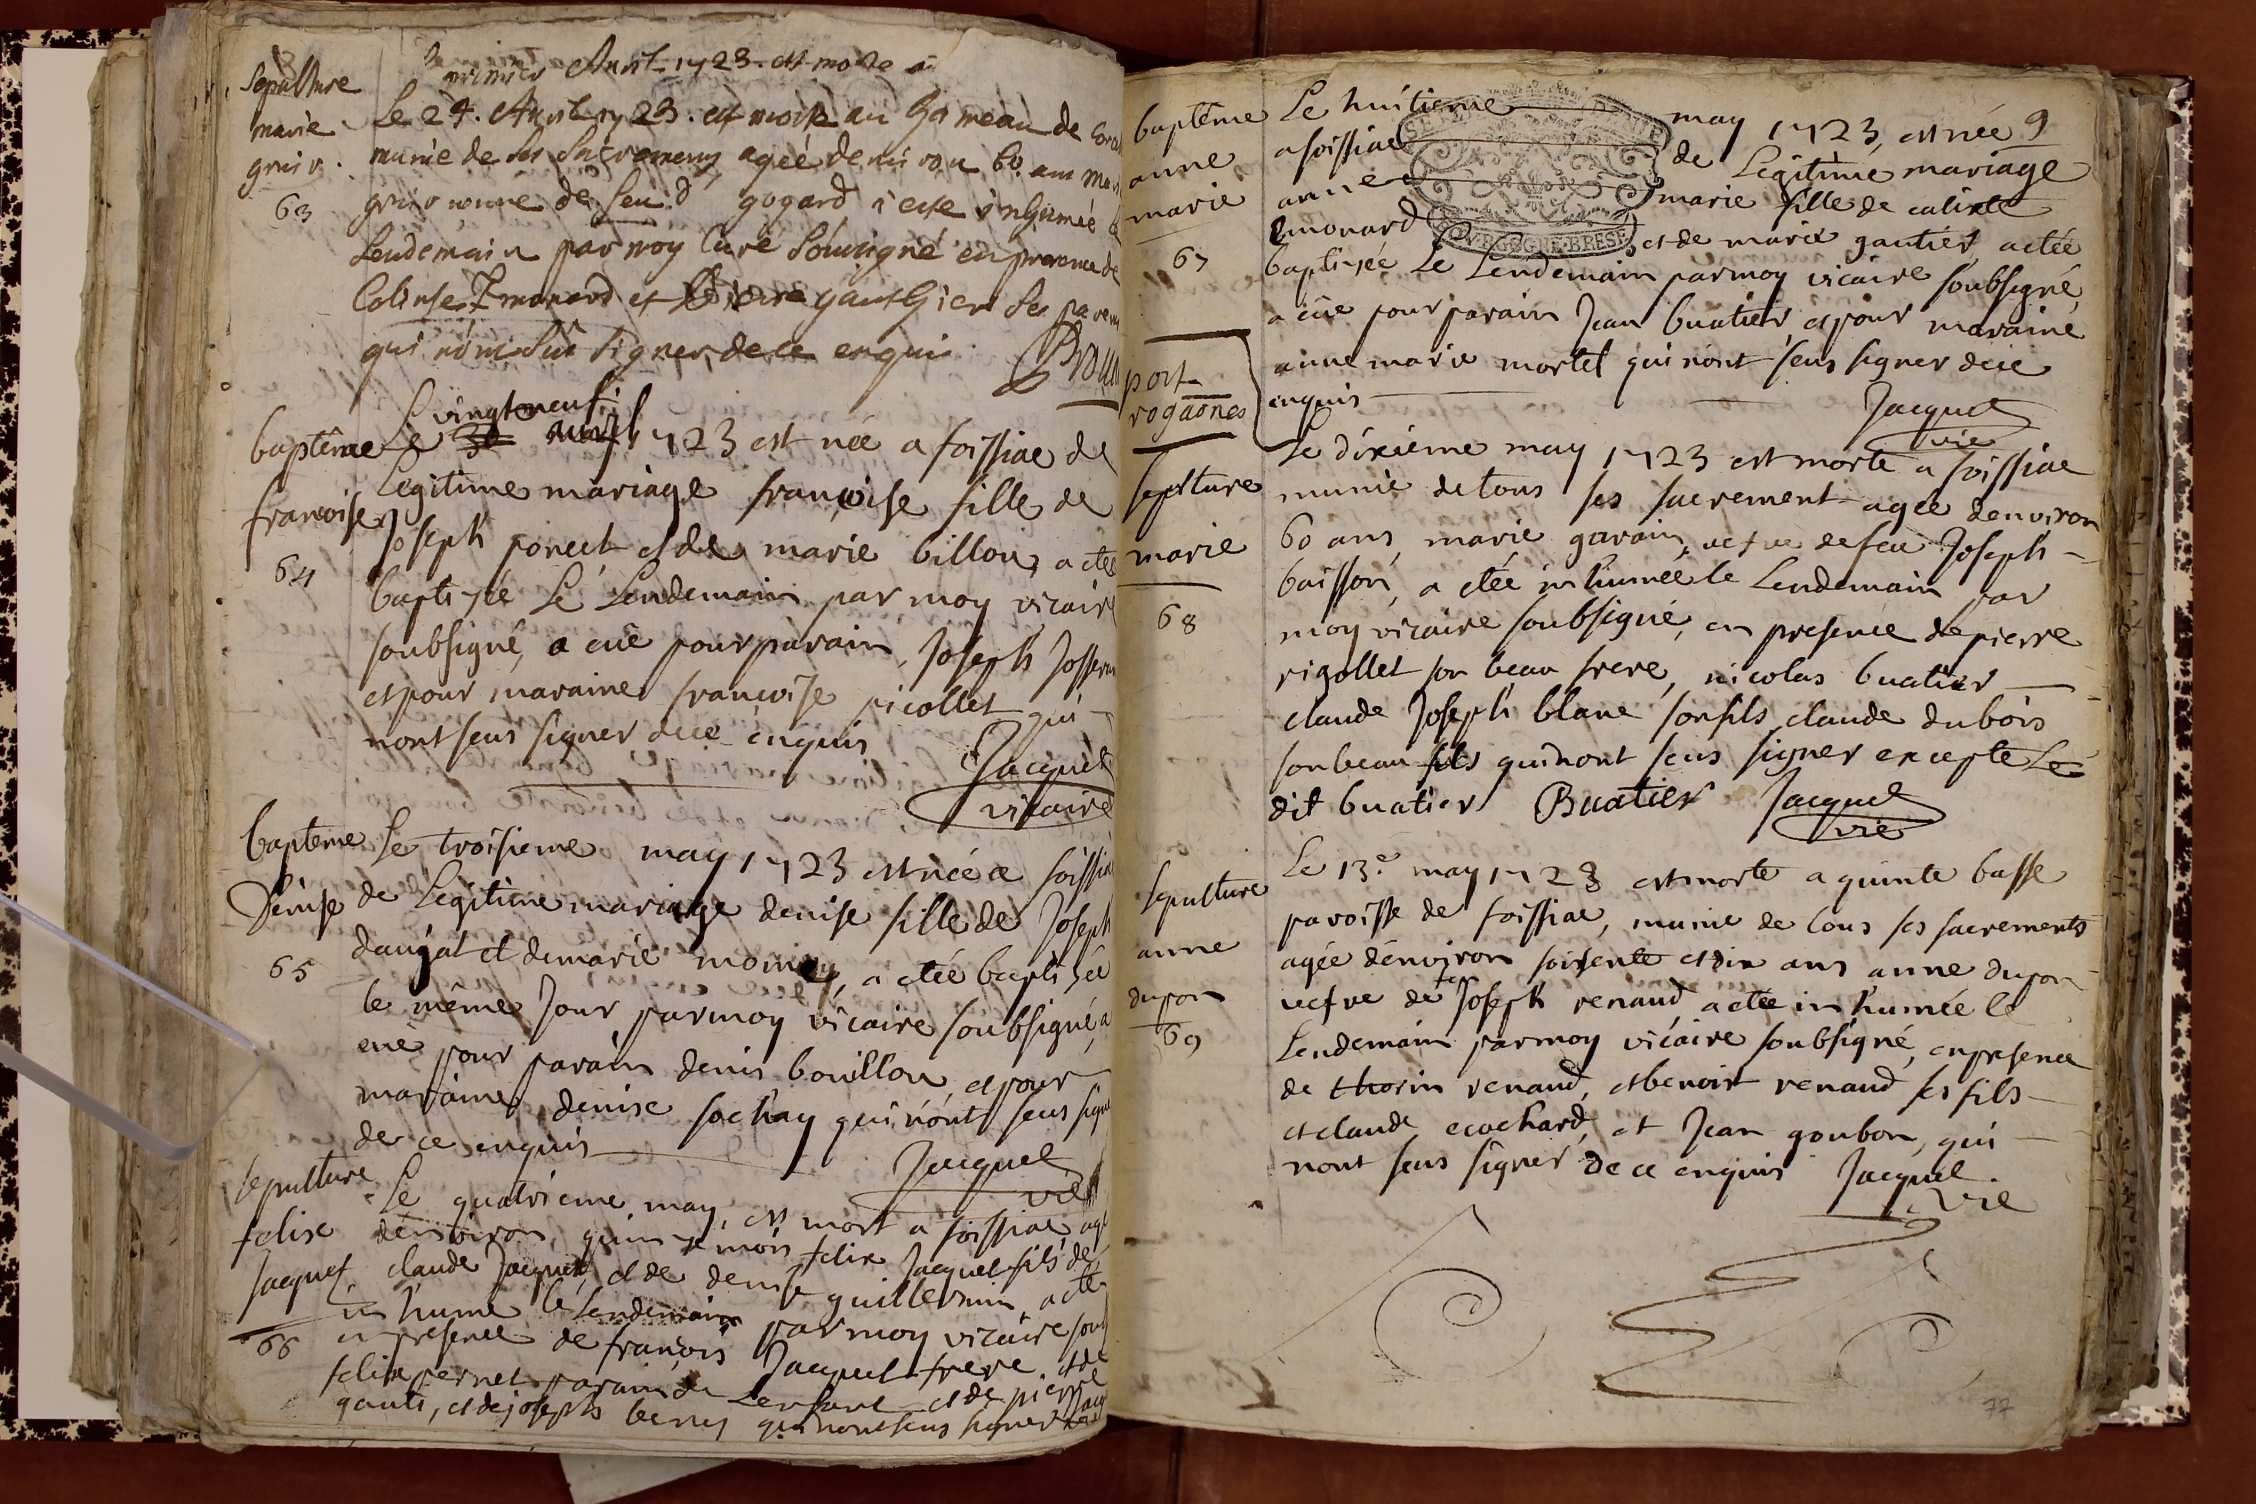 Sepulture
marie
gruir
63
premier Avril 1723 est morte a
Le 24. Avril 1723. est morte au hameau de
munie de ses Sacremens agée denviron 60. ans Marie
gruir vefve de feu gogard a esté inhumée le
Lendemain par moy Curé Soussigné en presence de
Calixte Emonard et Pierre gauthier ses parens
qui n'ont sceu signer de ce enquis
baptême
francoise
64
Le vingtneuf avril 1723 est née a foissiac de
Legitime mariage françoise fille de
Joseph poncet et de marie billon, a etée
baptisée Le Lendemain par moy vicaire
soubsigné, a eüe pour parain, Joseph Josseran
et pour maraine françoise picollet qui
nont sceus signer de ce enquis
Jacquet
vicaire
bapteme
Denise
65
Le troisieme may 1723 est née a foissiac
de Legitime mariage denise fille de Joseph
daujat et de marie momey, a etée baptisée
le même Jour par moy vicaire soubsigné, a
eüe pour parain denis bouillon et pour
maraine denise sochay qui nont sceus signer
de ce enquis
Jacquet
vic
sepulture
felix
Jacquet
66
Le quatrieme may, est mort a foissiac agé
denviron quinze mois felix Jacquet fils de
claude Jacquet et de denise guillermin, a eté
in humé le Lendemain par moy vicaire soub
en presence de françois Jacquet frere, et de
felix pernet parain de Lenfant et de pierre
gauti, et de joseph berny qui nont sceus signer
baptême
anne
marie
67
Le huitieme may 1723, est née 9
a foissiac de Legitime mariage
anne marie fille de calixte
Emonard et de marie gautier, a etée
baptisée Le Lendemain par moy vicaire soubsigné,
a eüe pour parain Jean buatier et pour maraine
anne marie mortel qui nont sceus signer de ce
enquis
Jacquet
vic
post
rogaõnes
sepulture
marie
68
Le dixieme may 1723 est morte a foissiac
munie de tous ses sacrement agée denviron
60 ans, marie garain, vefve de feu Joseph
buisson, a etée inhumée le Lendemain par
moy vicaire soubsigné, en presence de pierre
rigollet son beau frere, nicolas buatier
claude Joseph blanc son fils, claude dubois
son beau fils qui nont sceus signer excepte Le
dit buatier Buatier Jacquet
vic
sepulture
anne
dupon
69
Le 13.e may 1723 est morte a quinte basse
paroisse de foissiac, munie de tous ses sacrements
agée denviron soisente et dix ans anne dupon
vefve de Joseph renaud, a etée in humée le
Lendemain par moy vicaire soubsigné, en presence
de thorin renaud, et benoist renaud ses fils
et claude ecochard, et Jean goubon, qui
nont sceus signer de ce enquis Jacquet
vic
77